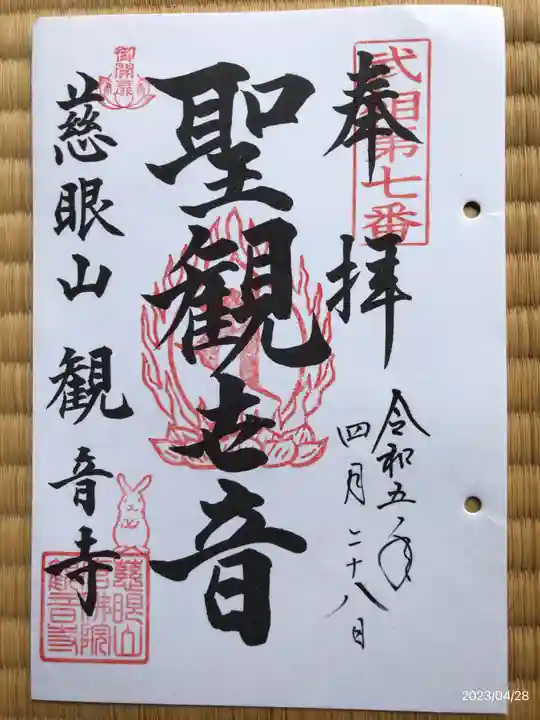 武相第七番
奉拝
令和五年
四月二十八日
聖観世音
御開扉
慈眼山 観音寺
慈眼山
観音寺
2023/04/28